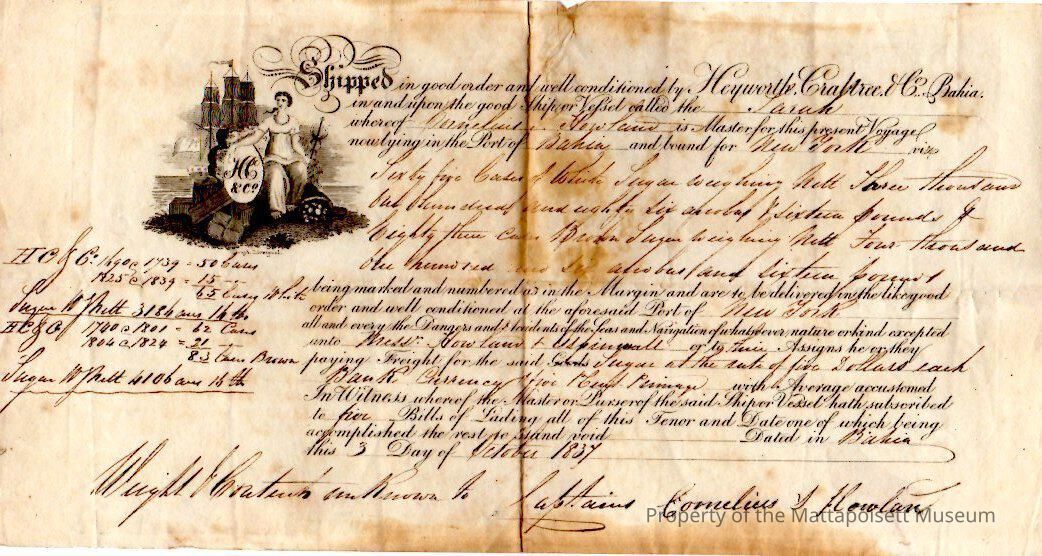 Shipped in good order and well conditioned by Heyworth, Crabtree, & Co. Bahia.
in and upon the good Ship or Vessel called the Sarah
whereof Cornelius Howland is Master for this present Voyage
now lying in the Port of Bahia and bound for New York viz
Sixty five Cases of White Sugar weighing Nett Three thousand
one hundred and eighty six arrobas & sixteen pounds &
Eighty three cases Brown Sugar weighing Nett Four thousand and
one hundred and six arrobas and sixteen pounds
HC & Co
H C & Co. 1690 @ 1739 = 50 Cases
1825 @ 1839 = 15
65 Cases White
Sugar Wg Nett 3186 ars 16 lbs
H C & Co 1740 @ 1801 = 62 Cases
1804 @ 1824 = 21
83 Cases Brown
Sugar Wg Nett 4106 ars 16 lbs
being marked and numbered as in the Margin and are to be delivered in the like good
order and well conditioned at the aforesaid Port of New York
all and every the Dangers and Accidents of the Seas and Navigation of whatsoever nature or kind excepted
unto Messrs. Howland & Aspinwall or to their Assigns he or they
paying Freight for the said Goods Sugar at the rate of five Dollars each
Bank Currency five Pr Cent Primage with Average accustomed
In Witness whereof the Master or Purser of the said Ship or Vessel hath subscribed
to five Bills of Lading all of this Tenor and Date one of which being
accomplished the rest to stand void Dated in Bahia
this 3 Day of October 1837
Weight & Contents unknown to Captains Cornelius Howland
Property of the Mattapoisett Museum